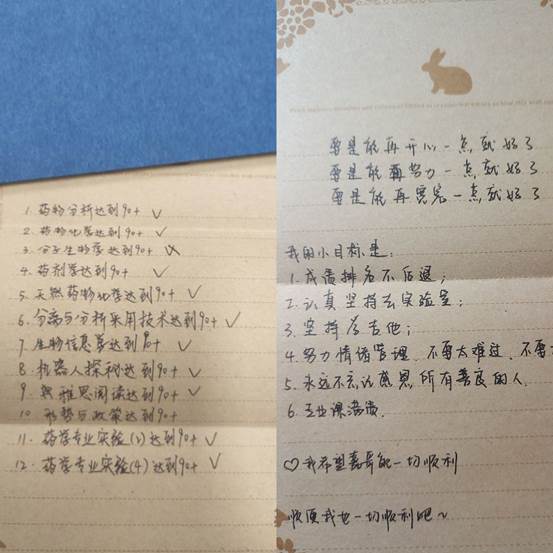 1. 药物分析达到90+ ✓
2. 药物化学达到90+ ✓
3. 分子生物学达到90+ ✗
4. 药剂学达到90+ ✓
5. 天然药物化学达到90+ ✓
6. 分离与分析采用技术达到90+ ✓
7. 生物信息学达到90+ ✓
8. 机器人探秘达到90+ ✓
9. 雅思阅读达到90+ ✓
10. 形势与政策达到90+
11. 药学专业实验(3)达到90+ ✓
12. 药学专业实验(4)达到90+ ✓
要是能再开心一点就好了
要是能再努力一点就好了
要是能再瘦一点就好了
我的小目标是:
1. 成绩排名不后退;
2. 认真坚持去实验室;
3. 坚持学吉他;
4. 努力情绪管理, 不要太难过, 不
5. 永远不忘记感恩所有善良的人.
6. 专业课满绩.
♡我希望嘉哥能一切顺利
顺便我也一切顺利吧~